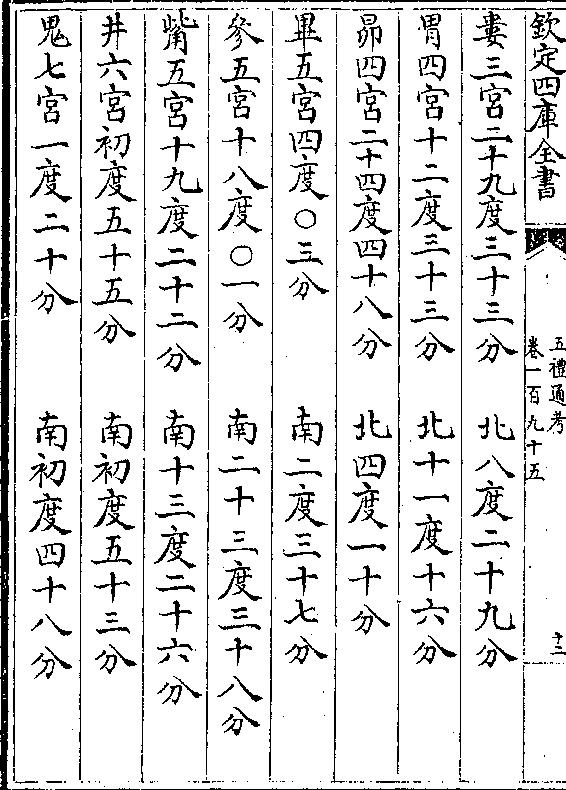 欽定四庫全書
五禮通考
卷一百九十五
十三
婁三宮二十九度三十三分 北八度二十九分
胃四宮十二度三十三分 北十一度十六分
昴四宮二十四度四十八分 北四度一十分
畢五宮四度○三分 南二度三十七分
參五宮十八度○一分 南二十三度三十八分
觜五宮十九度二十二分 南十三度二十六分
井六宮初度五十五分 南初度五十三分
鬼七宮一度二十分 南初度四十八分